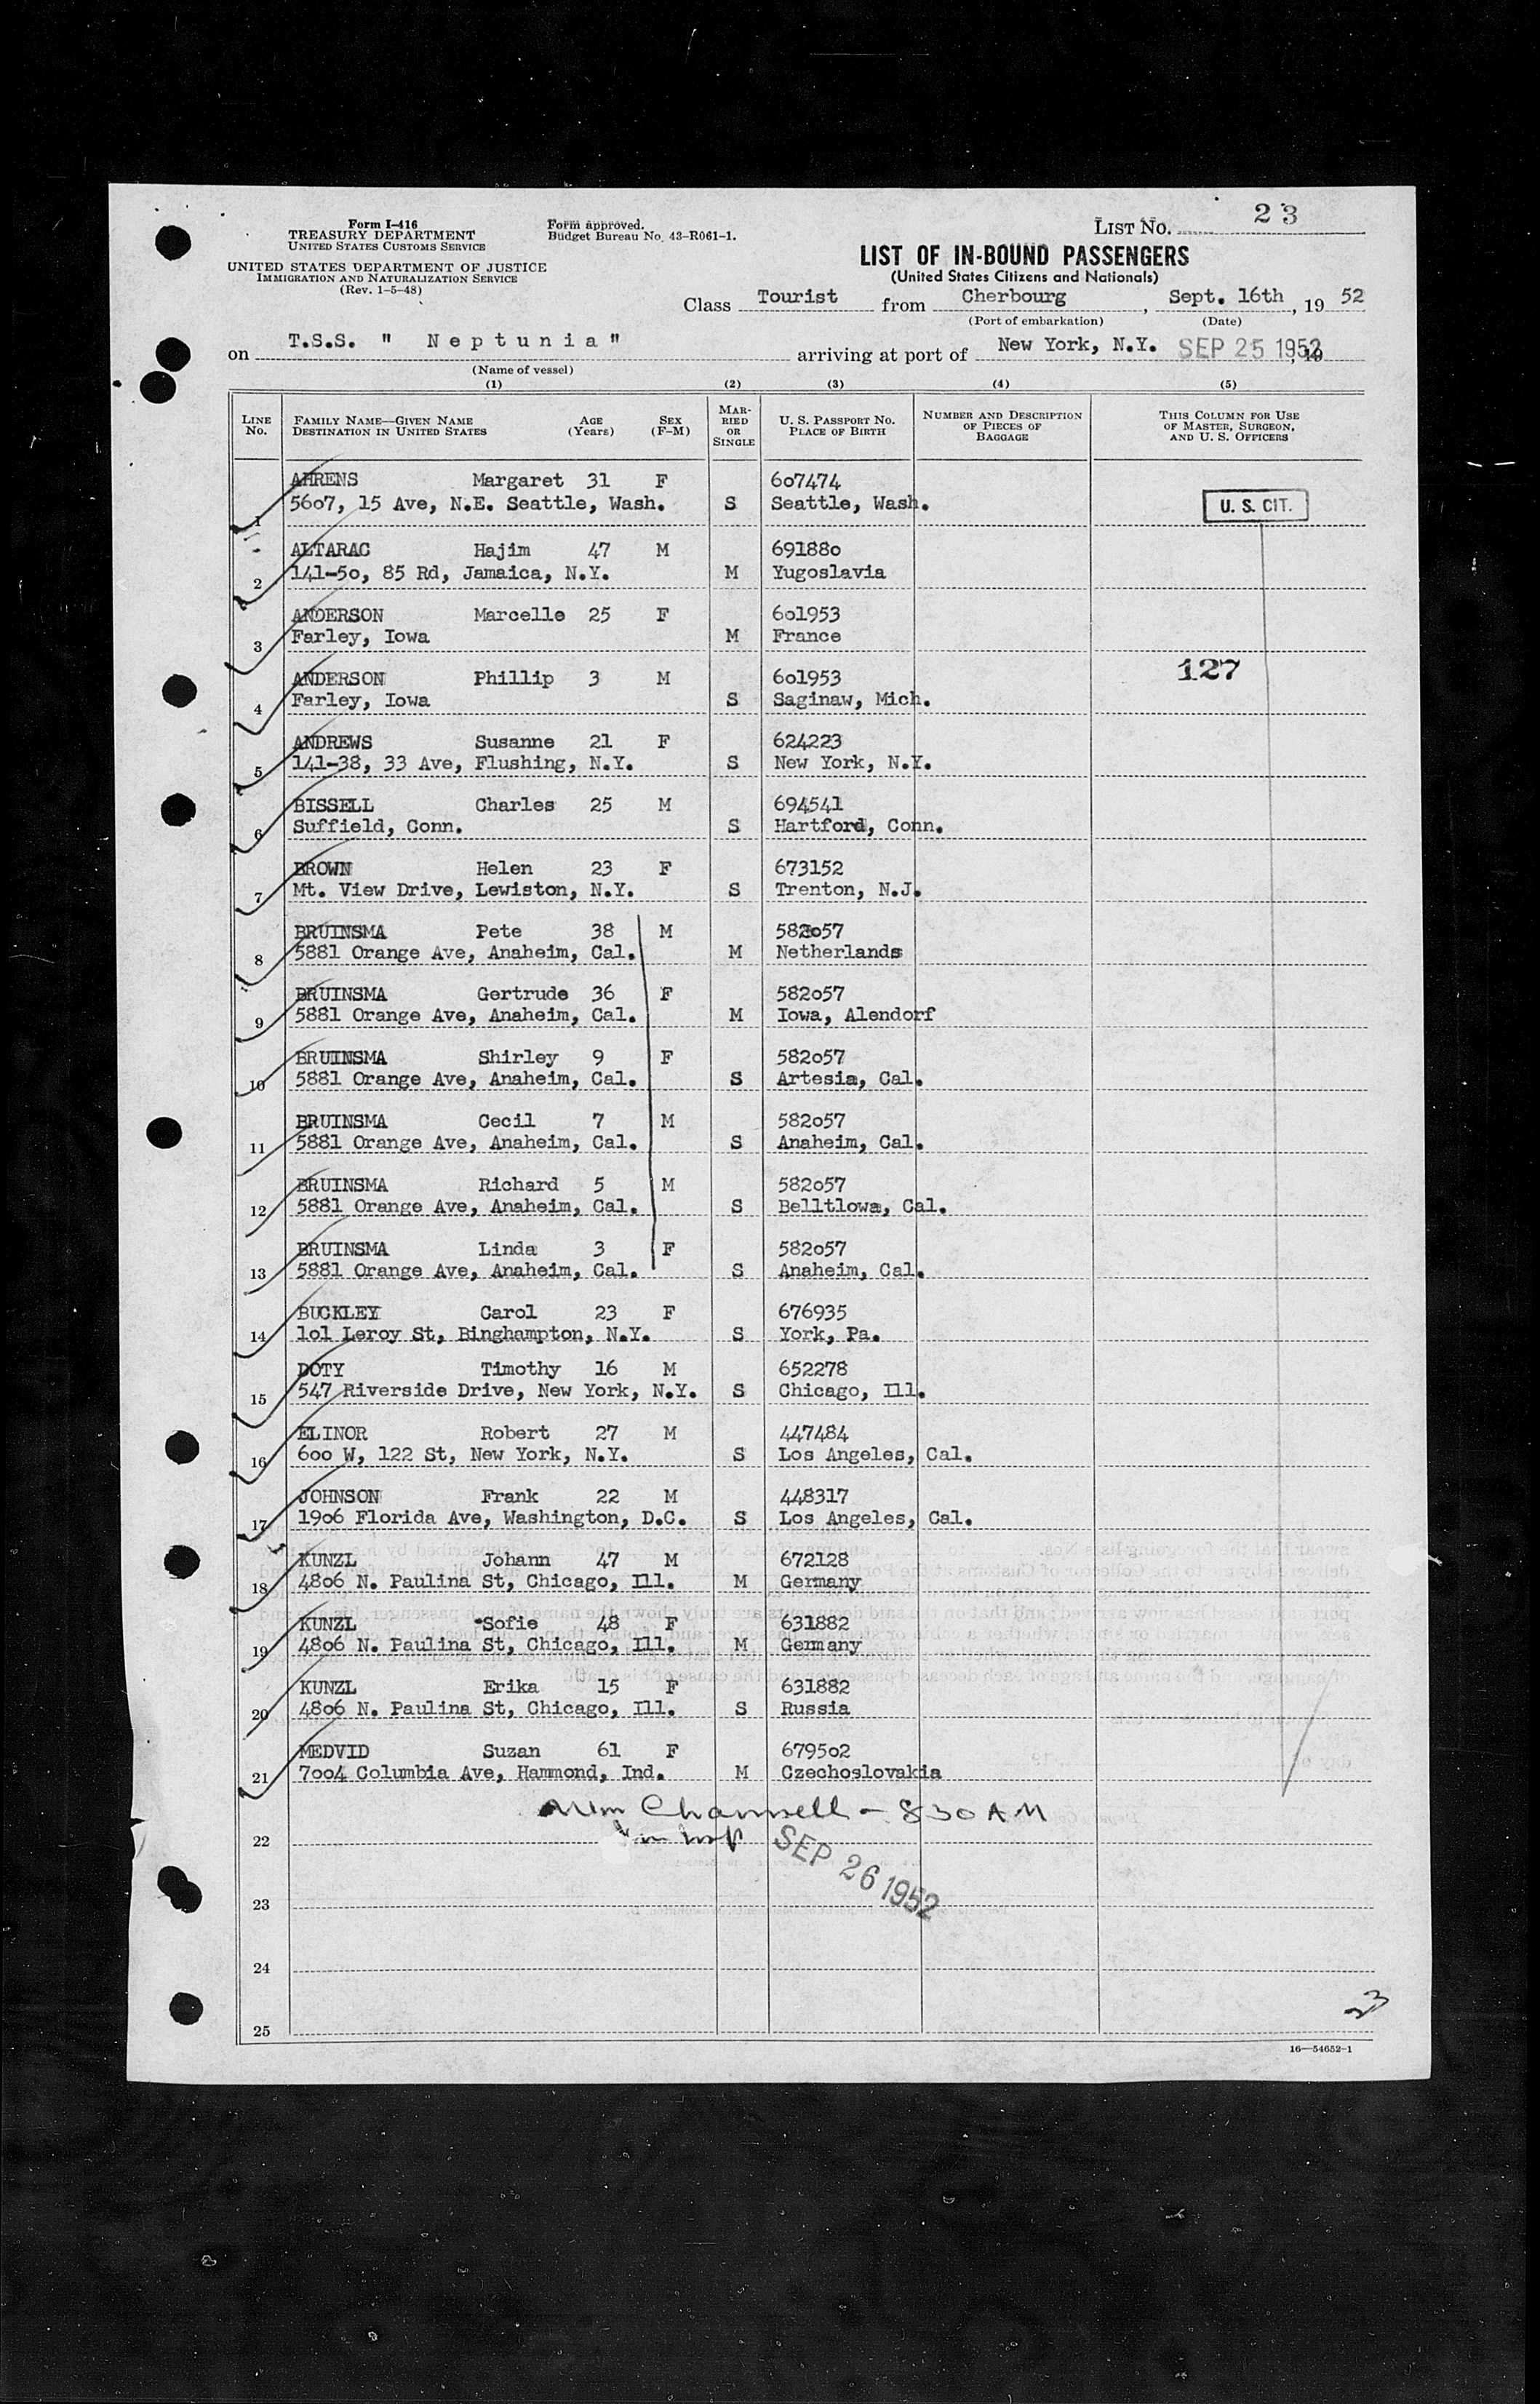 Form I-416
TREASURY DEPARTMENT
UNITED STATES CUSTOMS SERVICE
Form approved.
Budget Bureau No. 43-R061-1.
LIST No. 23
UNITED STATES DEPARTMENT OF JUSTICE
IMMIGRATION AND NATURALIZATION SERVICE
(Rev. 1-5-48)
LIST OF IN-BOUND PASSENGERS
(United States Citizens and Nationals)
Class Tourist from Cherbourg, Sept. 16th, 19 52
(Port of embarkation) (Date)
on T.S.S. " N e p t u n i a " arriving at port of New York, N.Y. SEP 25 1952, 19
(Name of vessel)
(1) (2) (3) (4) (5)
LINE No. FAMILY NAME—GIVEN NAME DESTINATION IN UNITED STATES AGE (Years) SEX (F-M) MARRIED OR SINGLE U. S. PASSPORT No. PLACE OF BIRTH NUMBER AND DESCRIPTION OF PIECES OF BAGGAGE THIS COLUMN FOR USE OF MASTER, SURGEON, AND U. S. OFFICERS
AHRENS Margaret 31 F 607474
1 5607, 15 Ave, N.E. Seattle, Wash. S Seattle, Wash. U. S. CIT.
ALTARAC Hajim 47 M 691880
2 141-50, 85 Rd, Jamaica, N.Y. M Yugoslavia
ANDERSON Marcelle 25 F 601953
3 Farley, Iowa M France
ANDERSON Phillip 3 M 601953 127
4 Farley, Iowa S Saginaw, Mich.
ANDREWS Susanne 21 F 624223
5 141-38, 33 Ave, Flushing, N.Y. S New York, N.Y.
BISSELL Charles 25 M 694541
6 Suffield, Conn. S Hartford, Conn.
BROWN Helen 23 F 673152
7 Mt. View Drive, Lewiston, N.Y. S Trenton, N.J.
BRUINSMA Pete 38 M 582057
8 5881 Orange Ave, Anaheim, Cal. M Netherlands
BRUINSMA Gertrude 36 F 582057
9 5881 Orange Ave, Anaheim, Cal. M Iowa, Alendorf
BRUINSMA Shirley 9 F 582057
10 5881 Orange Ave, Anaheim, Cal. S Artesia, Cal.
BRUINSMA Cecil 7 M 582057
11 5881 Orange Ave, Anaheim, Cal. S Anaheim, Cal.
BRUINSMA Richard 5 M 582057
12 5881 Orange Ave, Anaheim, Cal. S Belltlowa, Cal.
BRUINSMA Linda 3 F 582057
13 5881 Orange Ave, Anaheim, Cal. S Anaheim, Cal.
BUCKLEY Carol 23 F 676935
14 101 Leroy St, Binghampton, N.Y. S York, Pa.
DOTY Timothy 16 M 652278
15 547 Riverside Drive, New York, N.Y. S Chicago, Ill.
ELINOR Robert 27 M 447484
16 600 W, 122 St, New York, N.Y. S Los Angeles, Cal.
JOHNSON Frank 22 M 448317
17 1906 Florida Ave, Washington, D.C. S Los Angeles, Cal.
KUNZL Johann 47 M 672128
18 4806 N. Paulina St, Chicago, Ill. M Germany
KUNZL Sofie 48 F 631882
19 4806 N. Paulina St, Chicago, Ill. M Germany
KUNZL Erika 15 F 631882
20 4806 N. Paulina St, Chicago, Ill. S Russia
MEDVID Suzan 61 F 679502
21 7004 Columbia Ave, Hammond, Ind. M Czechoslovakia
- 830 AM
22
SEP 26 1952
23
24
23
25
16—54652-1